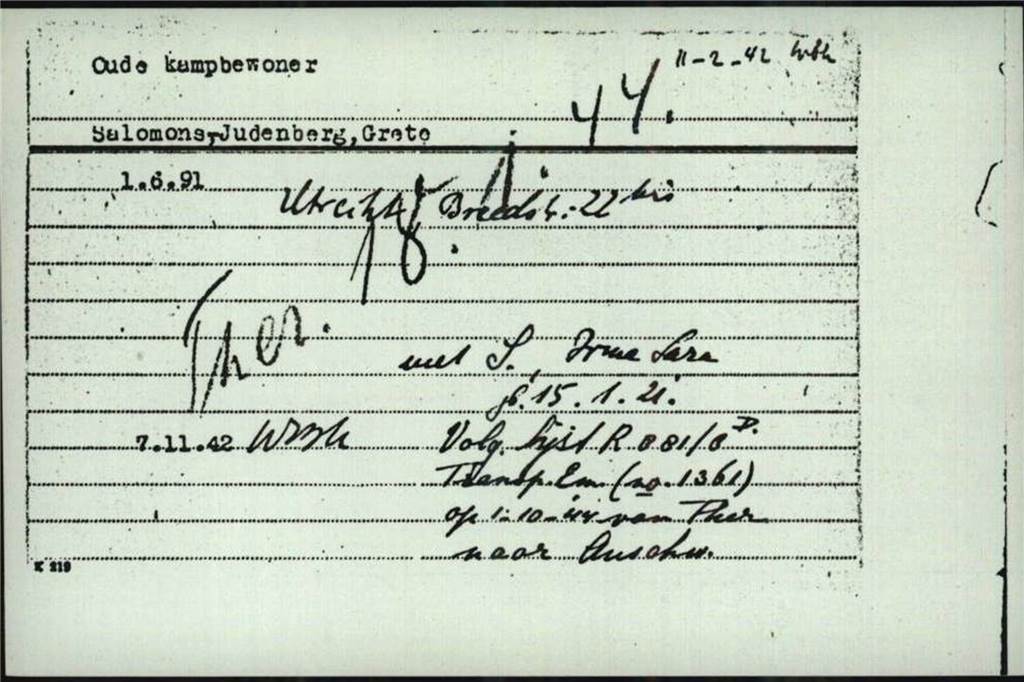 Oude kampbewoner
11-2-42 Wbk
44.
Salomons-Judenberg,Grete
1.6.91
Utrecht, Breedstr. 22 bis
Ther.
met S., Irma Sara
gb. 15.1.21.
7.11.42 Wbk
Volg. lijst R 881/8 D.
Transp. Em (no. 1361)
op 1-10-44 van Ther
naar Auschw.
K 219